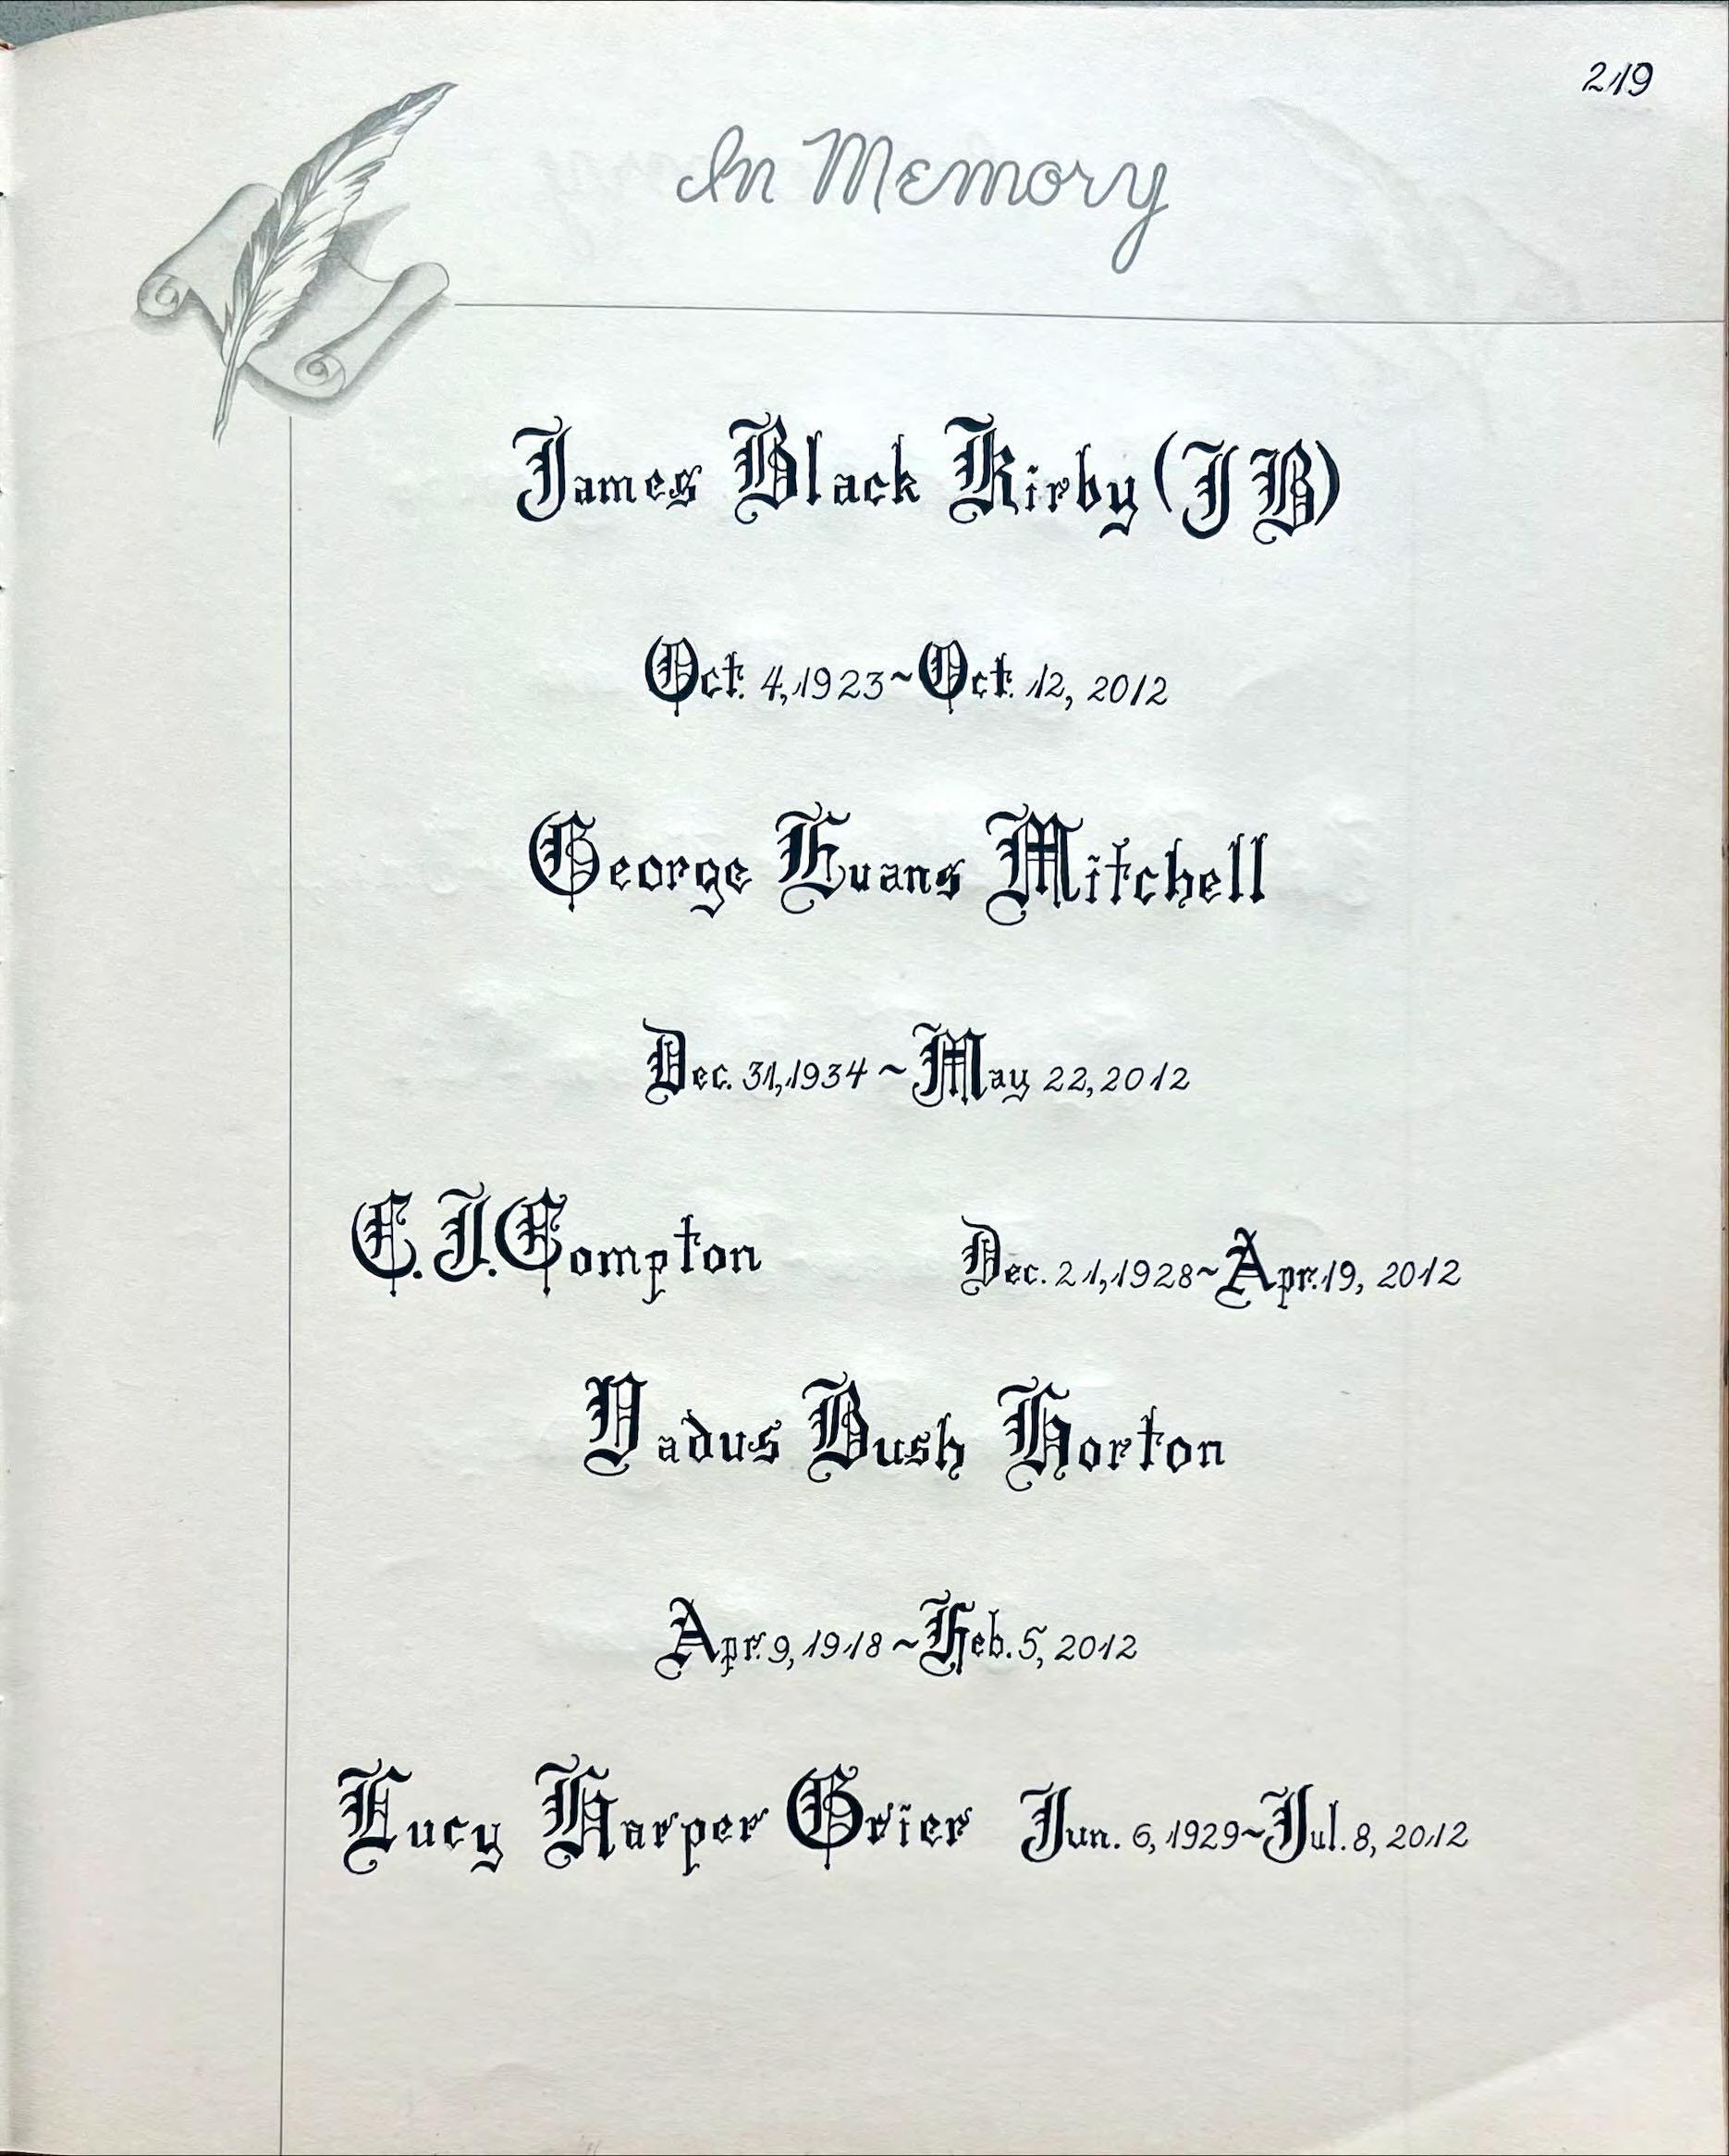 219
In Memory
James Black Kirby (J B)
Oct. 4, 1923 ~ Oct. 12, 2012
George Evans Mitchell
Dec. 31, 1934 ~ May 22, 2012
C. J. Compton Dec. 21, 1928 ~ Apr. 19, 2012
Vadus Bush Horton
Apr. 9, 1918 ~ Feb. 5, 2012
Lucy Harper Grier Jun. 6, 1929 ~ Jul. 8, 2012